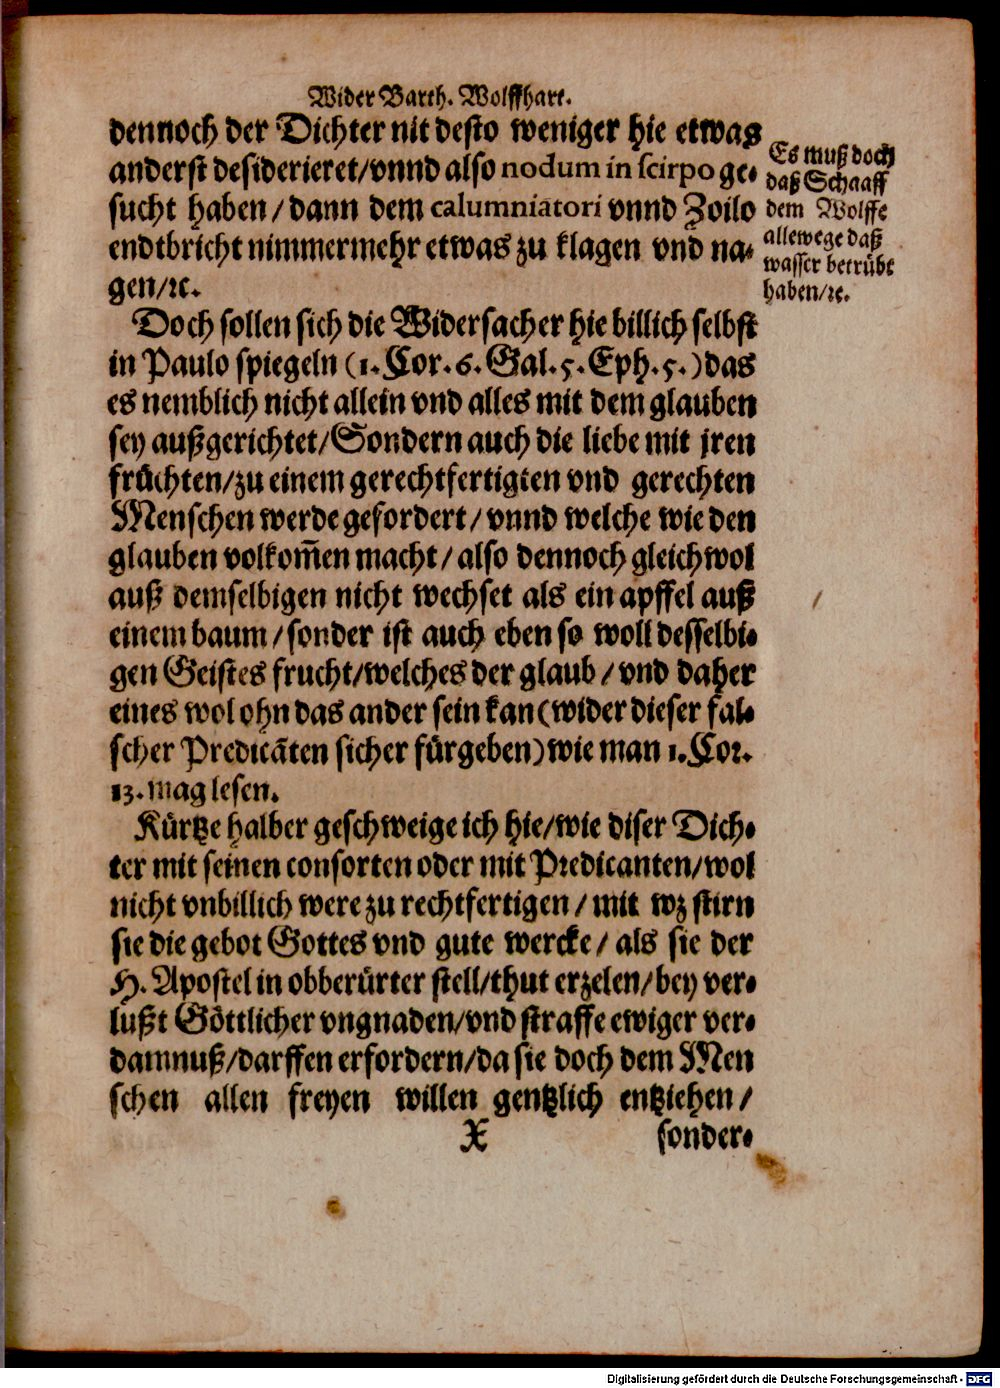 Wider Barth. Wolffhart.
dennoch der Dichter nit desto weniger hie etwas
anderst desiderieret/vnnd also nodum in scirpo ge-
sucht haben/dann dem calumniatori vnnd Zoilo
endtbricht nimmermehr etwas zu klagen vnd na-
gen/ꝛc.
Es muß doch
daß Schaaff
dem Wolffe
allewege daß
wasser betrübt
haben/ꝛc.
Doch sollen sich die Widersacher hie billich selbst
in Paulo spiegeln (1. Cor. 6. Gal. 5. Eph. 5.) das
es nemblich nicht allein vnd alles mit dem glauben
sey außgerichtet/Sondern auch die liebe mit jren
früchten/zu einem gerechtfertigten vnd gerechten
Menschen werde gefordert/vnnd welche wie den
glauben volkom̃en macht/also dennoch gleichwol
auß demselbigen nicht wechset als ein apffel auß
einem baum/sonder ist auch eben so woll desselbi-
gen Geistes frucht/welches der glaub/vnd daher
eines wol ohn das ander sein kan (wider dieser fal-
scher Predicãten sicher fürgeben) wie man 1. Cor.
13. mag lesen.
Kürtze halber geschweige ich hie/wie diser Dich-
ter mit seinen consorten oder mit Predicanten/wol
nicht vnbillich were zu rechtfertigen/mit wz stirn
sie die gebot Gottes vnd gute wercke/als sie der
H. Apostel in obberürter stell/thut erzelen/bey ver-
lußt Göttlicher vngnaden/vnd straffe ewiger ver-
damnuß/darffen erfordern/da sie doch dem Men
schen allen freyen willen gentzlich entziehen/
X sonder-
Digitalisierung gefördert durch die Deutsche Forschungsgemeinschaft - DFG